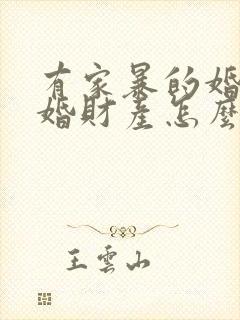 有家暴的婚
婚財產怎麼
王雲山